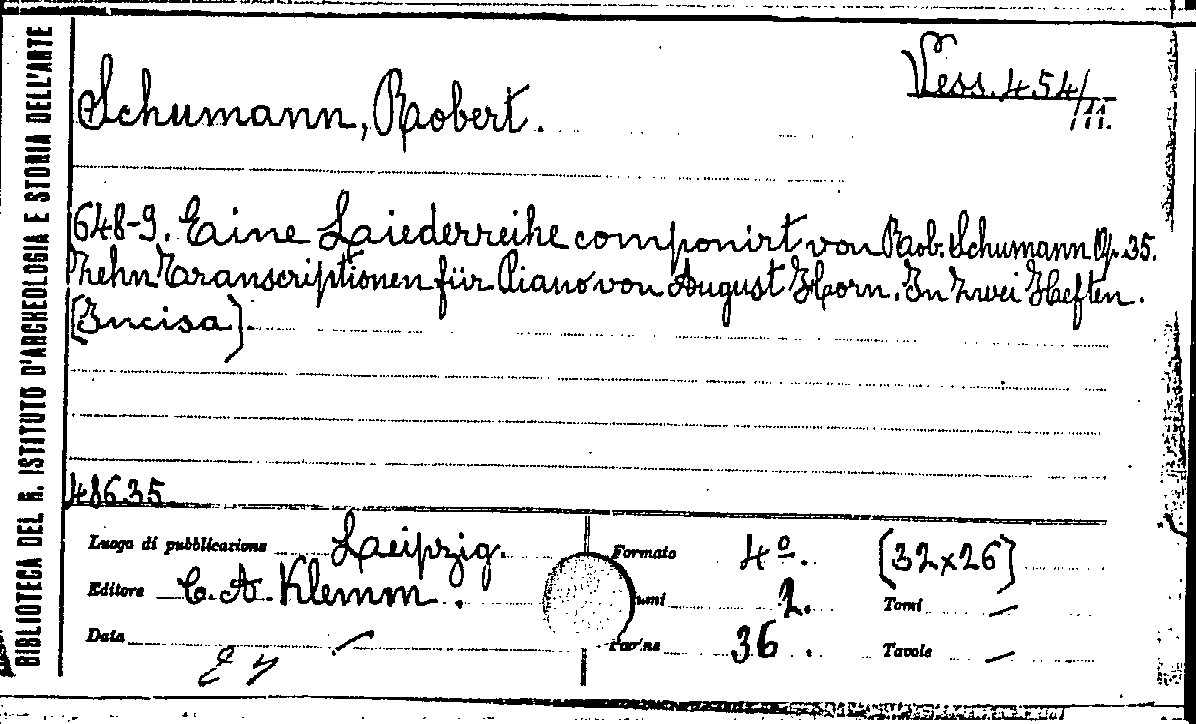 BIBLIOTECA DEL R. ISTITUTO D'ARCHEOLOGIA E STORIA DELL'ARTE
Vess. 454/11.
Schumann, Robert.
648-9. Eine Liederreihe componirt von Rob. Schumann Op. 35.
Zehn Transcriptionen für Piano von August Horn. In zwei Heften.
(Incisa).
48635
Luogo di pubblicazione Leipzig. Formato 4º. (32x26)
Editore C. A. Klemm. umi 2. Tomi —
Data — 36. Tavole —